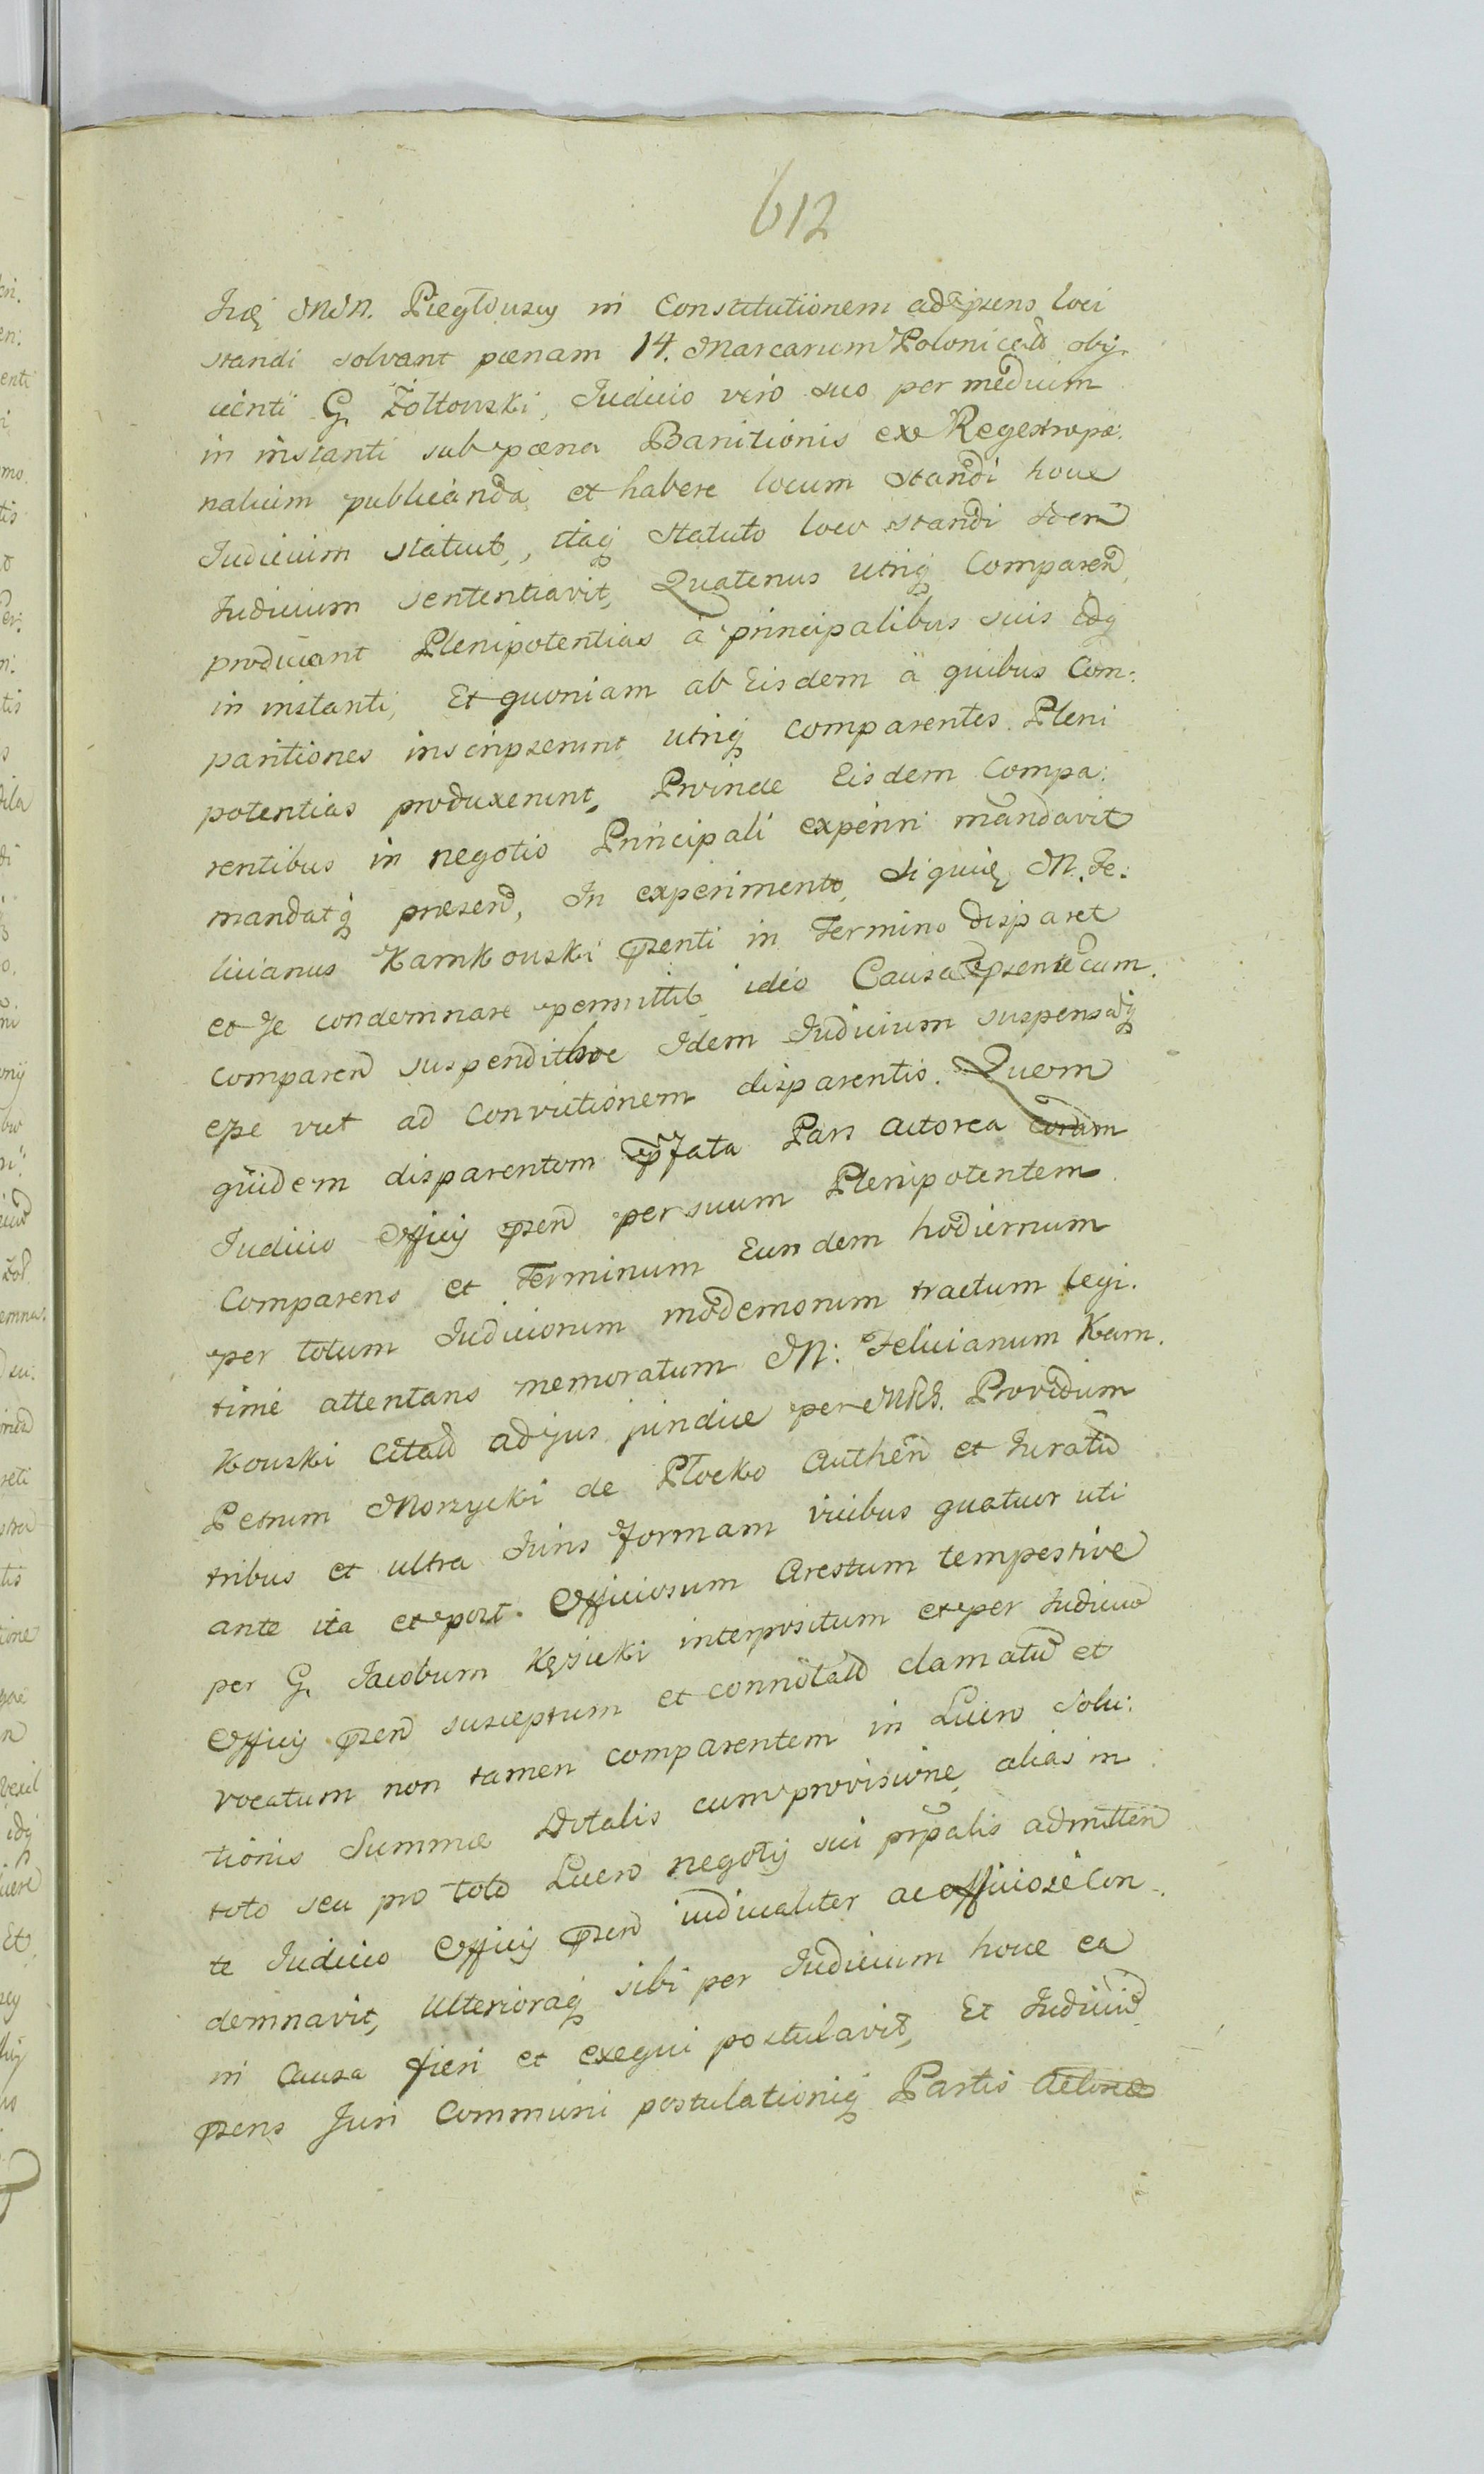 612
Huę MM. Piegłouscy in Constitutionem ad psens loci
standi solvant pœnam 14. Marcarum Polonicalū obij
cienti G. Żołtouski, Judicio vero suo per medium
in instanti sub pœna Banitionis ex Regestro pæ:
nalium publicanda et habere locum standi hocce
Judicium statuit, itaq statuto loco standi Idem
Judicium sententiavit, Quatenus utriq Comparen
producant Plenipotentias à principalibus suis idq
in instanti, Et quoniam ab Eisdem à quibus Com:
paritiones inscripserunt utriq comparentes Pleni
potentias produxerunt, Proinde Eisdem Compa:
rentibus in negotio Principali experiri mandavit
mandatq præsend, In experimento, Siquię M. Fe:
licianus Kamkouski psenti in Termino disparet
et Se condemnare permittit ideo Causa psente cum
comparen suspendit hoc Idem Judicium suspensaq
eße vult ad Convictionem disparentis. Quem
quidem disparentem pfata Pars Actorea coram
Judicio Officij psen per suum Plenipotentem
Comparens et Terminum Eundem hodiernum
per totum Judiciorum modernorum tractum legi.
time attentans memoratum M: Felicianum Kam.
kouski Citatū ad jus juridice per MRG. Providum
Petrum Morzycki de Płocko Authen et Juratū
tribus et ultra Juris formam vicibus quatuor uti
ante ita et post Officiosum Arestum tempestive
per G. Jacobum Kęsicki interpositum et per Judiciū
Officij psen susceptum et connotatū clamatū et
vocatum non tamen comparentem in Lucro Solu:
tionis Summæ Dotalis cum provisione alias in
toto seu pro toto Lucro negotij sui prpalis admitten
te Judicio Officij psen iudicialiter ac officiose Con
demnavit, Ulterioraq sibi per Judicium hocce ea
in Causa fieri et exequi postulavit, Et Judiciū
psens Juri Communi postulationiq Partis Actoreæ